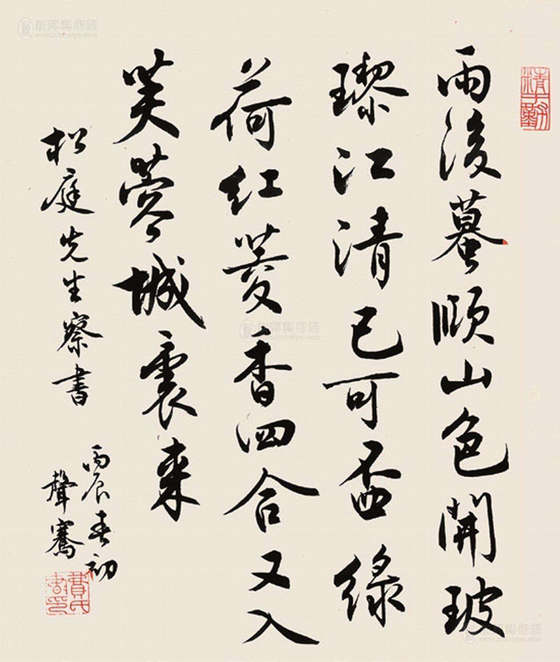 雨後蟇頤山色開玻
瓈江清已可盃綠
荷紅菱香四合又入
芙蓉城裏來
松庭先生察書
丙辰春初
聲騫